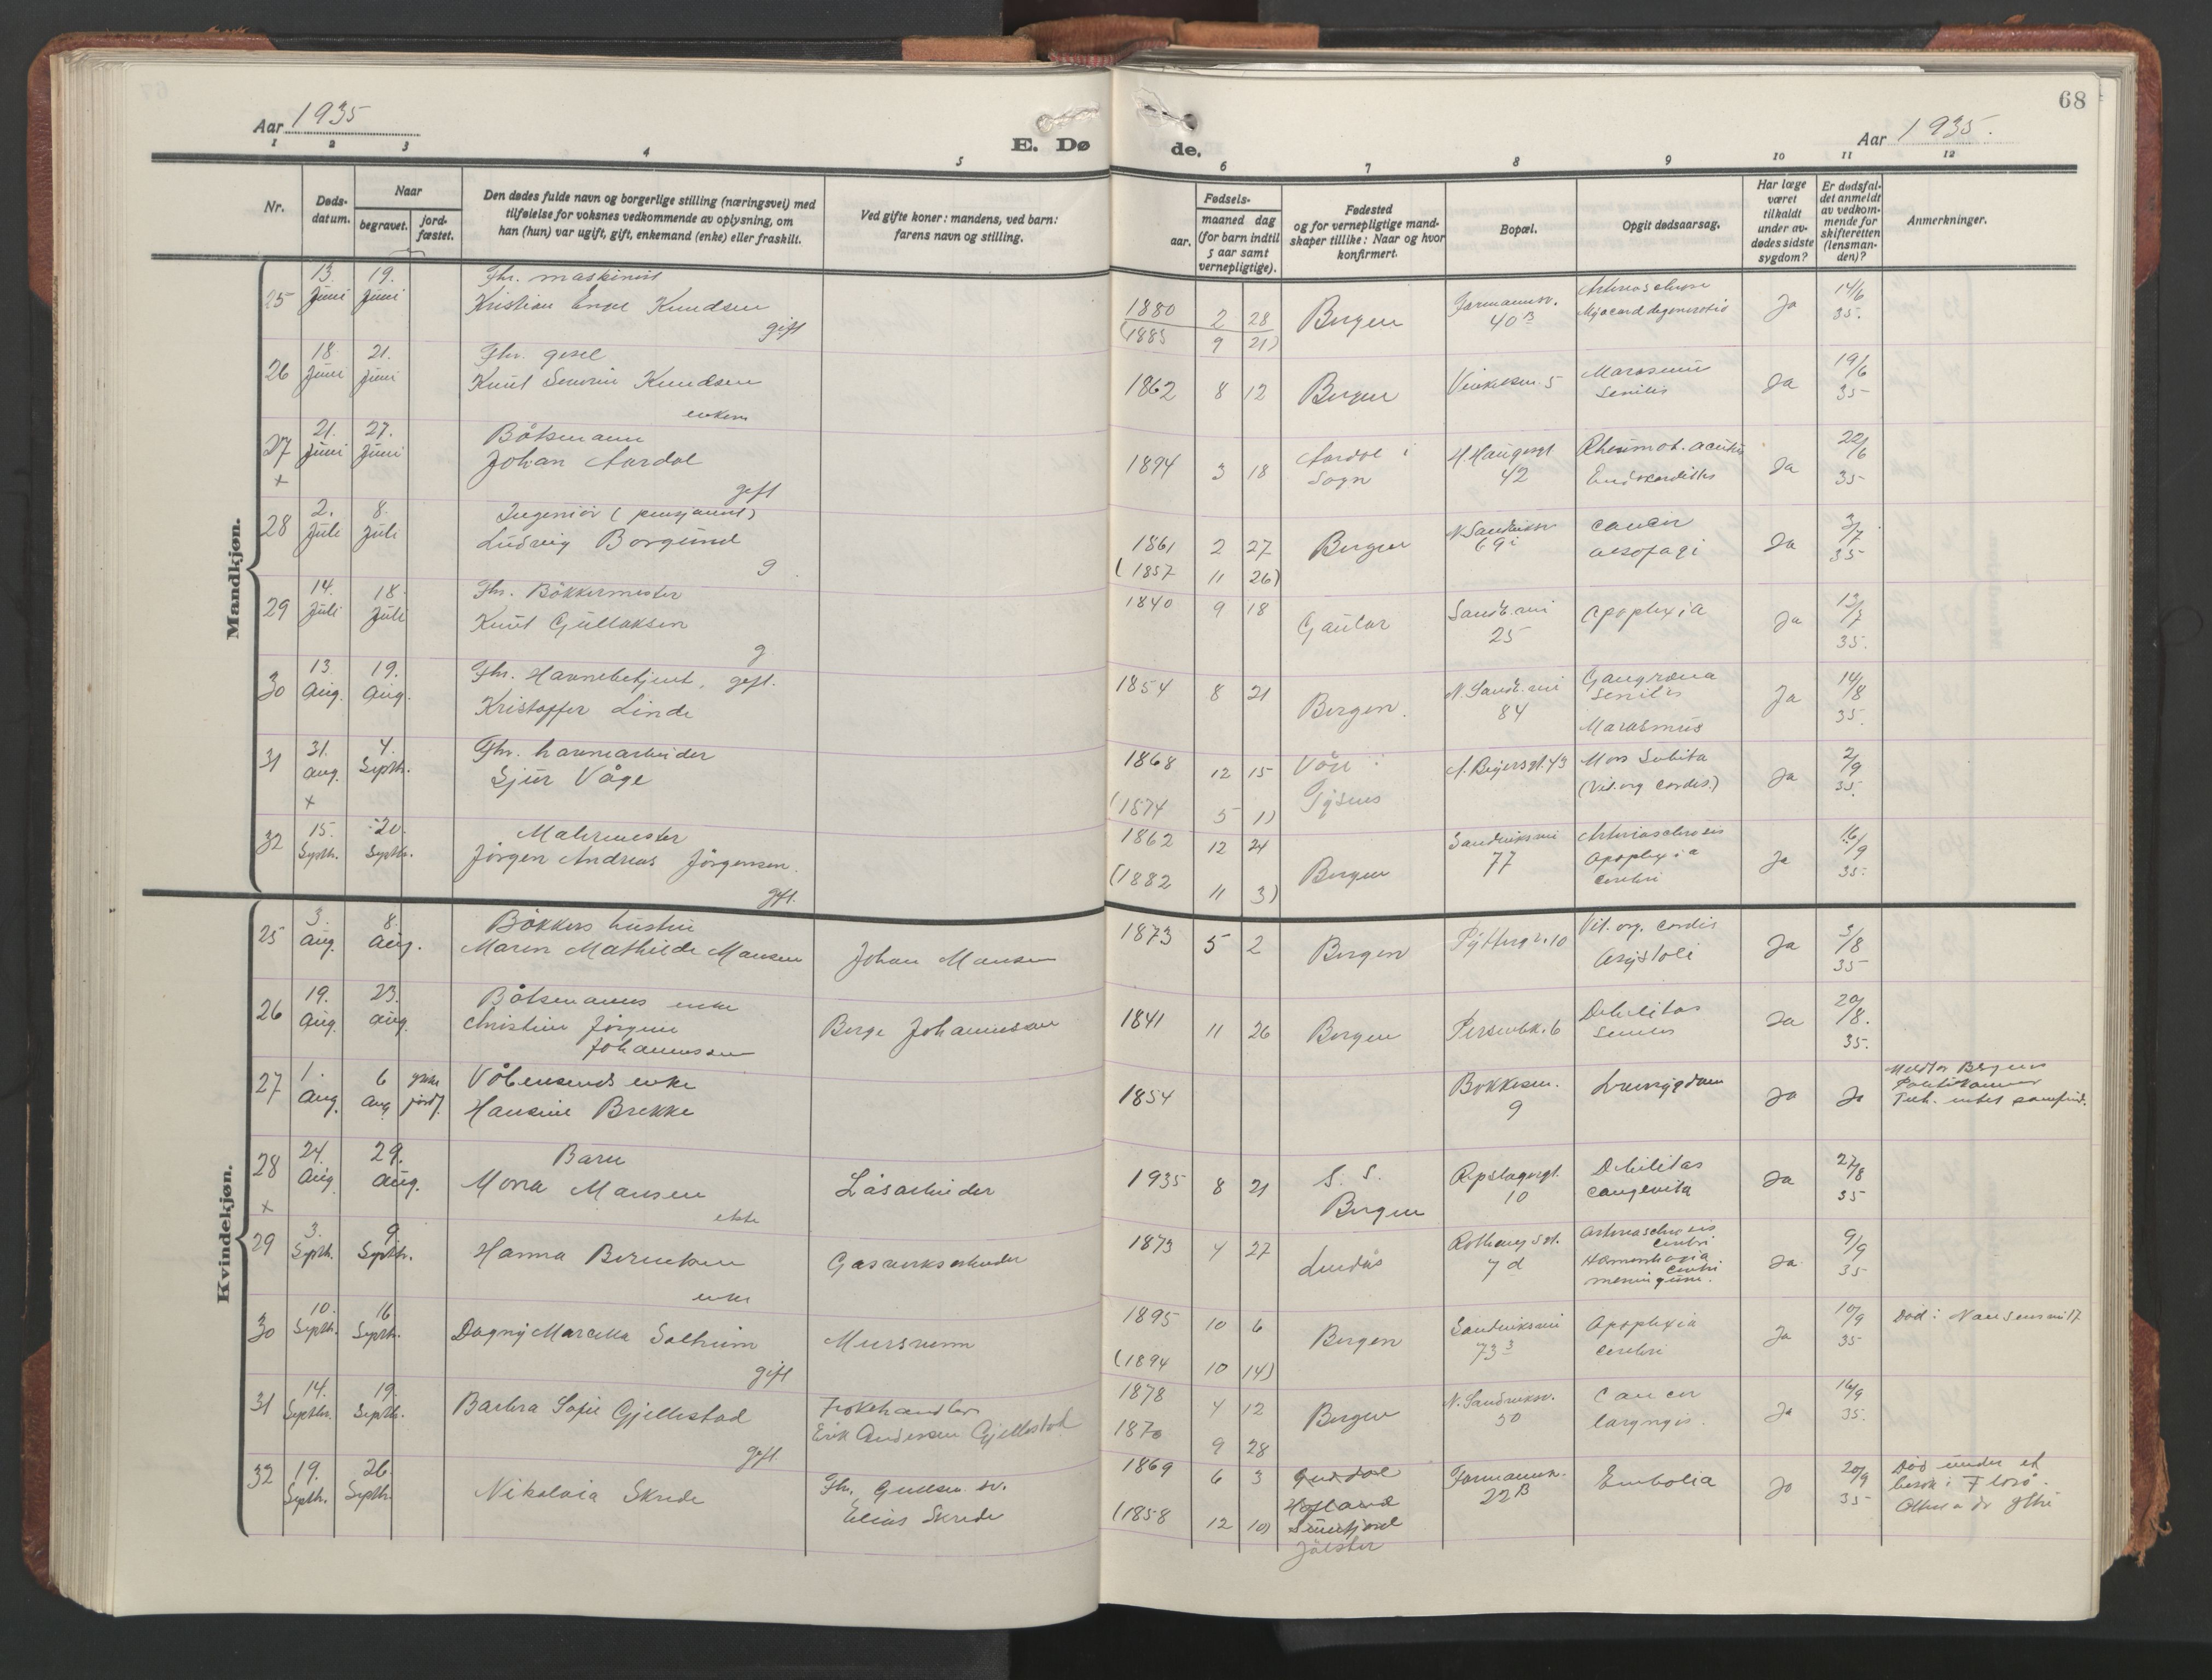 68
Aar 1935
E. Dø
de,
Aar 1935.
1 2 3 4 5 6 7 8 9 10 11 12
Nr.
Døds-
datum.
Naar
begravet.
jord-
fæstet.
Den dødes fulde navn og borgerlige stilling (næringsvei) med
tilføielse for voksnes vedkommende av oplysning, om
han (hun) var ugift, gift, enkemand (enke) eller fraskilt.
Ved gifte koner: mandens, ved barn:
farens navn og stilling.
aar.
Fødsels-
maaned dag
(for barn indtil
5 aar samt
vernepligtige).
Fødested
og for vernepligtige mand-
skaper tillike: Naar og hvor
konfirmert.
Bopæl.
Opgit dødsaarsag.
Har læge
været
tilkaldt
under av-
dødes sidste
sygdom?
Er dødsfal-
det anmeldt
av vedkom-
mende for
skifteretten
(lensman-
den)?
Anmerkninger.
Mandkjøn.
25 13. Juni 19. Juni
Fhr. maskinist
Kristian Engel Knudsen
gift
1880 2 28
(1885 9 21)
Bergen
40 B
Myocarddegeneratio
Ja
14/6
35.
26 18. Juni 21. Juni
Fhr. gesel
Knut Severin Knudsen
enkem
1862 8 12
Bergen
Marasmus
senilis
Ja
19/6
35
27 21. Juni 27. Juni
+
Båtsmann
Johan Aardal
gift
1894 3 18
Aardal i
Sogn
H. Haugesgt
42
Rheumat. acutus
Endokarditis
Ja
22/6
35
28 2. Juli 8. Juli
Ingeniör (pensjonist)
Ludvig Borgund
g
1861 2 27
(1857 11 26)
Bergen
N. Sandviksv
69 i
cancer
aesofagi
Ja
3/7
35
29 14. Juli 18. Juli
Fhr. Bökkermester
Knut Gullaksen
g
1840 9 18
Gaular
Sandv.vei
25
Apoplexia
Ja
13/7
35.
30 13. Aug. 19. Aug.
Fhr. Havnebetjent, gift.
Kristoffer Linde
1854 8 21
Bergen.
N. Sandv.vei
84
Gangræna
senilis
Marasmus
Ja
14/8
35.
31 31. aug. 4. Septbr.
+
Fhr. havnearbeider
Sjur Våge
1868 12 15
(1874 5 1)
A. Beyersgt. 43
Mors Subita
(Vit. org cordis.)
Ja
2/9
35.
32 15. Septbr. 20. Septbr.
Malermester
Jörgen Andreas Jörgensen.
gift.
1862 12 24
(1882 11 3)
Bergen
Sandviksvei
77
Arteriosclerosis
Apoplexia
cerebri
Ja
16/9
35.
Kvindekjøn.
25 3. Aug. 8. Aug.
Bökkers hustru
Maren Mathilde Mansen
Johan Mansen
1873 5 2
Bergen
Vit. org. cordis
Asystoli
Ja
3/8
35
26 19. Aug. 23. aug.
Båtsmanns enke
Christine Jörgine
Johannessen
Berge Johannessen
1841 11 26
Bergen
Persenbk. 6
Debilitas
senilis
Ja
20/8.
35.
27 1. Aug. 6 Aug
jordf.
enke
Hansine Brekke
1854
9
Ja
Ja
28 24. Aug 29. Aug.
+
Barn
Mona Mansen
ekte
Låsarbeider
1935 8 21
S. S.
Bergen
Repslagergt.
10
Debilitas
congenita
Ja
27/8
35
29 3. Septbr. 9. Septbr.
Hanna Berentsen
enke
Gasverksarbeider
1873 4 27
Lindås
7 d
Arteriosclerosis
cerebri
Hæmorrhagia
cerebri
Ja
9/9
35
30 10. Septbr. 16 Septbr.
Dagny Marcella Solheim
gift
Mursvenn
1895 10 6
(1894 10 14)
Bergen
Sandviksvei
73 3
Apoplexia
cerebri
Ja
10/9
35
Död i Nansensvei 17
31 14. Septbr. 19. Septbr.
Barbra Sofie Gjellestad
gift
Erik Andersen Gjellestad
1878 4 12
1870 9 28
Bergen
N. Sandviksv.
50
Cancer
laryngis.
Ja
16/9
35.
32 19. Septbr. 26. Septbr.
Nikolaia Skrede
Elias Skrede
1869 6 3
(1858 12 10)
Sunnfjord
Jölster
22 B
Embolia
Ja
20/9
35
Död under et
besök i Florö.